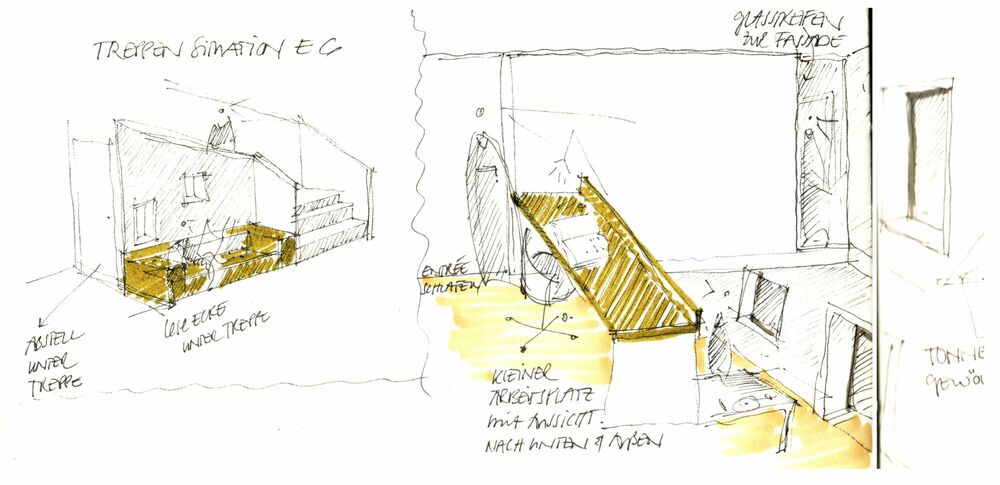 TREPPEN SITUATION EG
ABSTELL
UNTER
TREPPE
ECKE
UNTER TREPPE
GLASSTREIFEN
ZUR FASSADE
ENTRÉE
SCHLAFEN
KLEINER
ARBEITSPLATZ
MIT AUSSICHT
NACH UNTEN & AUßEN
TONNE
GEWÖ